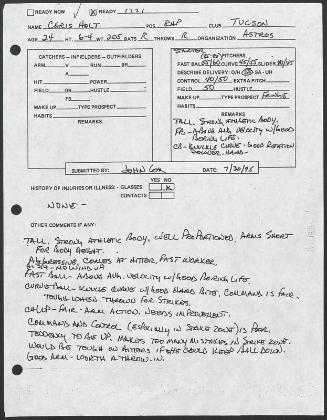 READY NOW READY 1731
NAME CHRIS HOLT POS. RHP CLUB TUCSON
AGE 24 HT. 6-4 WT 205 BATS R THROWS R ORGANIZATION ASTROS
CATCHERS – INFIELDERS - OUTFIELDERS
ARM V RUN V
A A
HIT POWER
FIELD HUSTLE
MAKE UP PROSPECT
HABITS
REMARKS
STARTER
PITCHERS
FAST BALL CURVE SLIDER
DESCRIBE DELIVERY: O/H SA - UH
CONTROL 40/50 EXTRA PITCH
FIELD 50 HUSTLE
MAKE UP TYPE PROSPECT FRINGE
HABITS
REMARKS
TALL, STRONG ATHLETIC BODY,
FB - ABOVE AVG. VELOCITY W/GOOD
BORING LIFE.
CB - KNUCKLE CURVE - GOOD ROTATION
SUBMITTED BY: JOHN COX DATE: 7/30/95
YES NO
HISTORY OF INJURIES OR ILLNESS: - GLASSES X
CONTACTS
NONE -
OTHER COMMENTS IF ANY:
TALL, STRONG, ATHLETIC BODY, WELL PROPORTIONED, ARMS SHORT
FOR BODY HEIGHT.
AGGRESSIVE, COMES AT HITTER, FAST WORKER.
NO WIND UP
FAST BALL - ABOVE AVG. VELOCITY W/GOOD BORING LIFE.
CURVE BALL - KNUCKLE CURVE W/GOOD HARD BITE, COMMAND IS FAIR -
TOUGH WHEN THROWN FOR STRIKES.
CH-UP - FAIR - ARM ACTION, NEEDS IMPROVEMENT.
COMMAND AND CONTROL (ESPECIALLY IN STRIKE ZONE) IS POOR,
TENDENCY TO BE UP. MAKES TOO MANY MISTAKES IN STRIKE ZONE.
WOULD BE TOUGH ON HITTERS IF HE COULD KEEP BALL DOWN.
GOOD ARM - WORTH A THROW-IN.